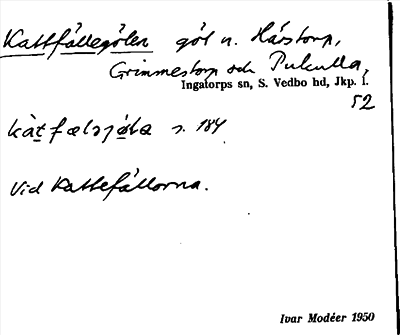 Kattfällegölen göl n. Hårstorp,
Grimmestorp och Pukulla,
Ingatorps sn, S. Vedbo hd, Jkp. l.
52
s. 184
Vid Kattefällorna.
Ivar Modéer 1950